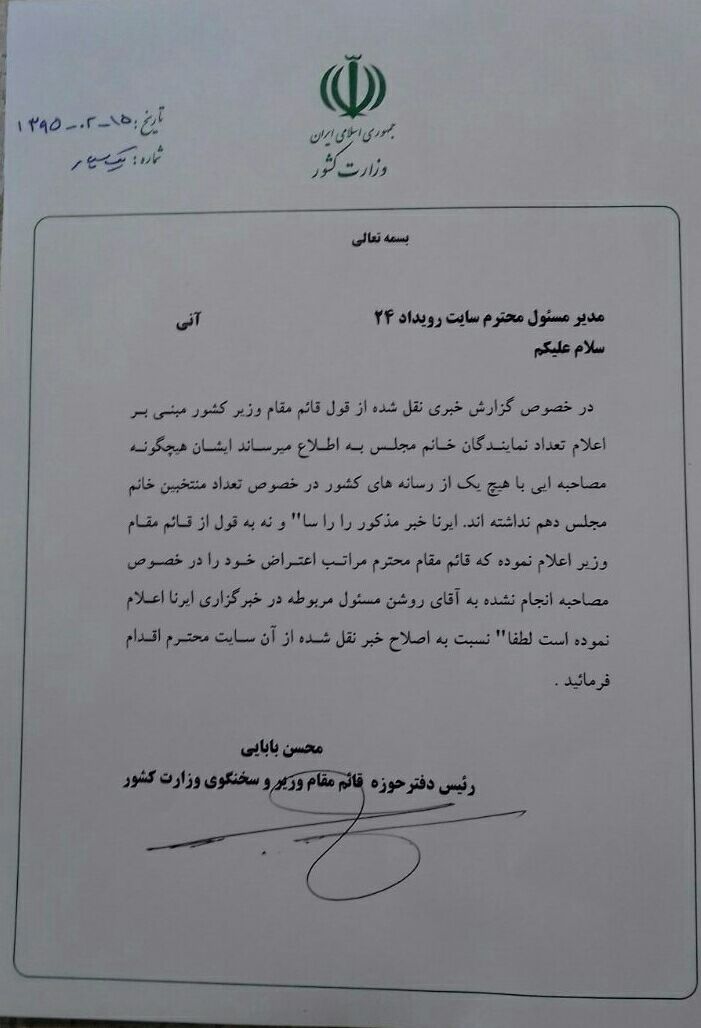 جمهوری اسلامی ایران
وزارت کشور
تاریخ: ۱۳۹۵-۰۲-۱۵
شماره:
بسمه تعالی
مدیر مسئول محترم سایت رویداد ۲۴ آنی
سلام علیکم
در خصوص گزارش خبری نقل شده از قول قائم مقام وزیر کشور مبنی بر
اعلام تعداد نمایندگان خانم مجلس به اطلاع میرساند ایشان هیچگونه
مصاحبه ایی با هیچ یک از رسانه های کشور در خصوص تعداد منتخبین خانم
مجلس دهم نداشته اند. ایرنا خبر مذکور را را سا" و نه به قول از قائم مقام
وزیر اعلام نموده که قائم مقام محترم مراتب اعتراض خود را در خصوص
مصاحبه انجام نشده به آقای روشن مسئول مربوطه در خبرگزاری ایرنا اعلام
نموده است لطفا" نسبت به اصلاح خبر نقل شده از آن سایت محترم اقدام
فرمائید .
محسن بابایی
رئیس دفترحوزه قائم مقام وزیر و سخنگوی وزارت کشور